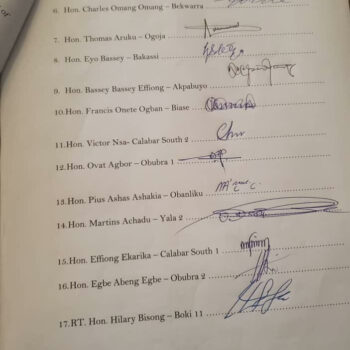 6. Hon. Charles Omang Omang – Bekwarra
7. Hon. Thomas Aruku – Ogoja
8. Hon. Eyo Bassey – Bakassi
9. Hon. Bassey Bassey Effiong – Akpabuyo
10.Hon. Francis Onete Ogban – Biase
11.Hon. Victor Nsa- Calabar South 2
12.Hon. Ovat Agbor – Obubra 1
13.Hon. Pius Ashas Ashakia – Obanliku
14.Hon. Martins Achadu – Yala 2
15.Hon. Effiong Ekarika – Calabar South 1
16.Hon. Egbe Abeng Egbe – Obubra 2
17.RT. Hon. Hilary Bisong – Boki 11